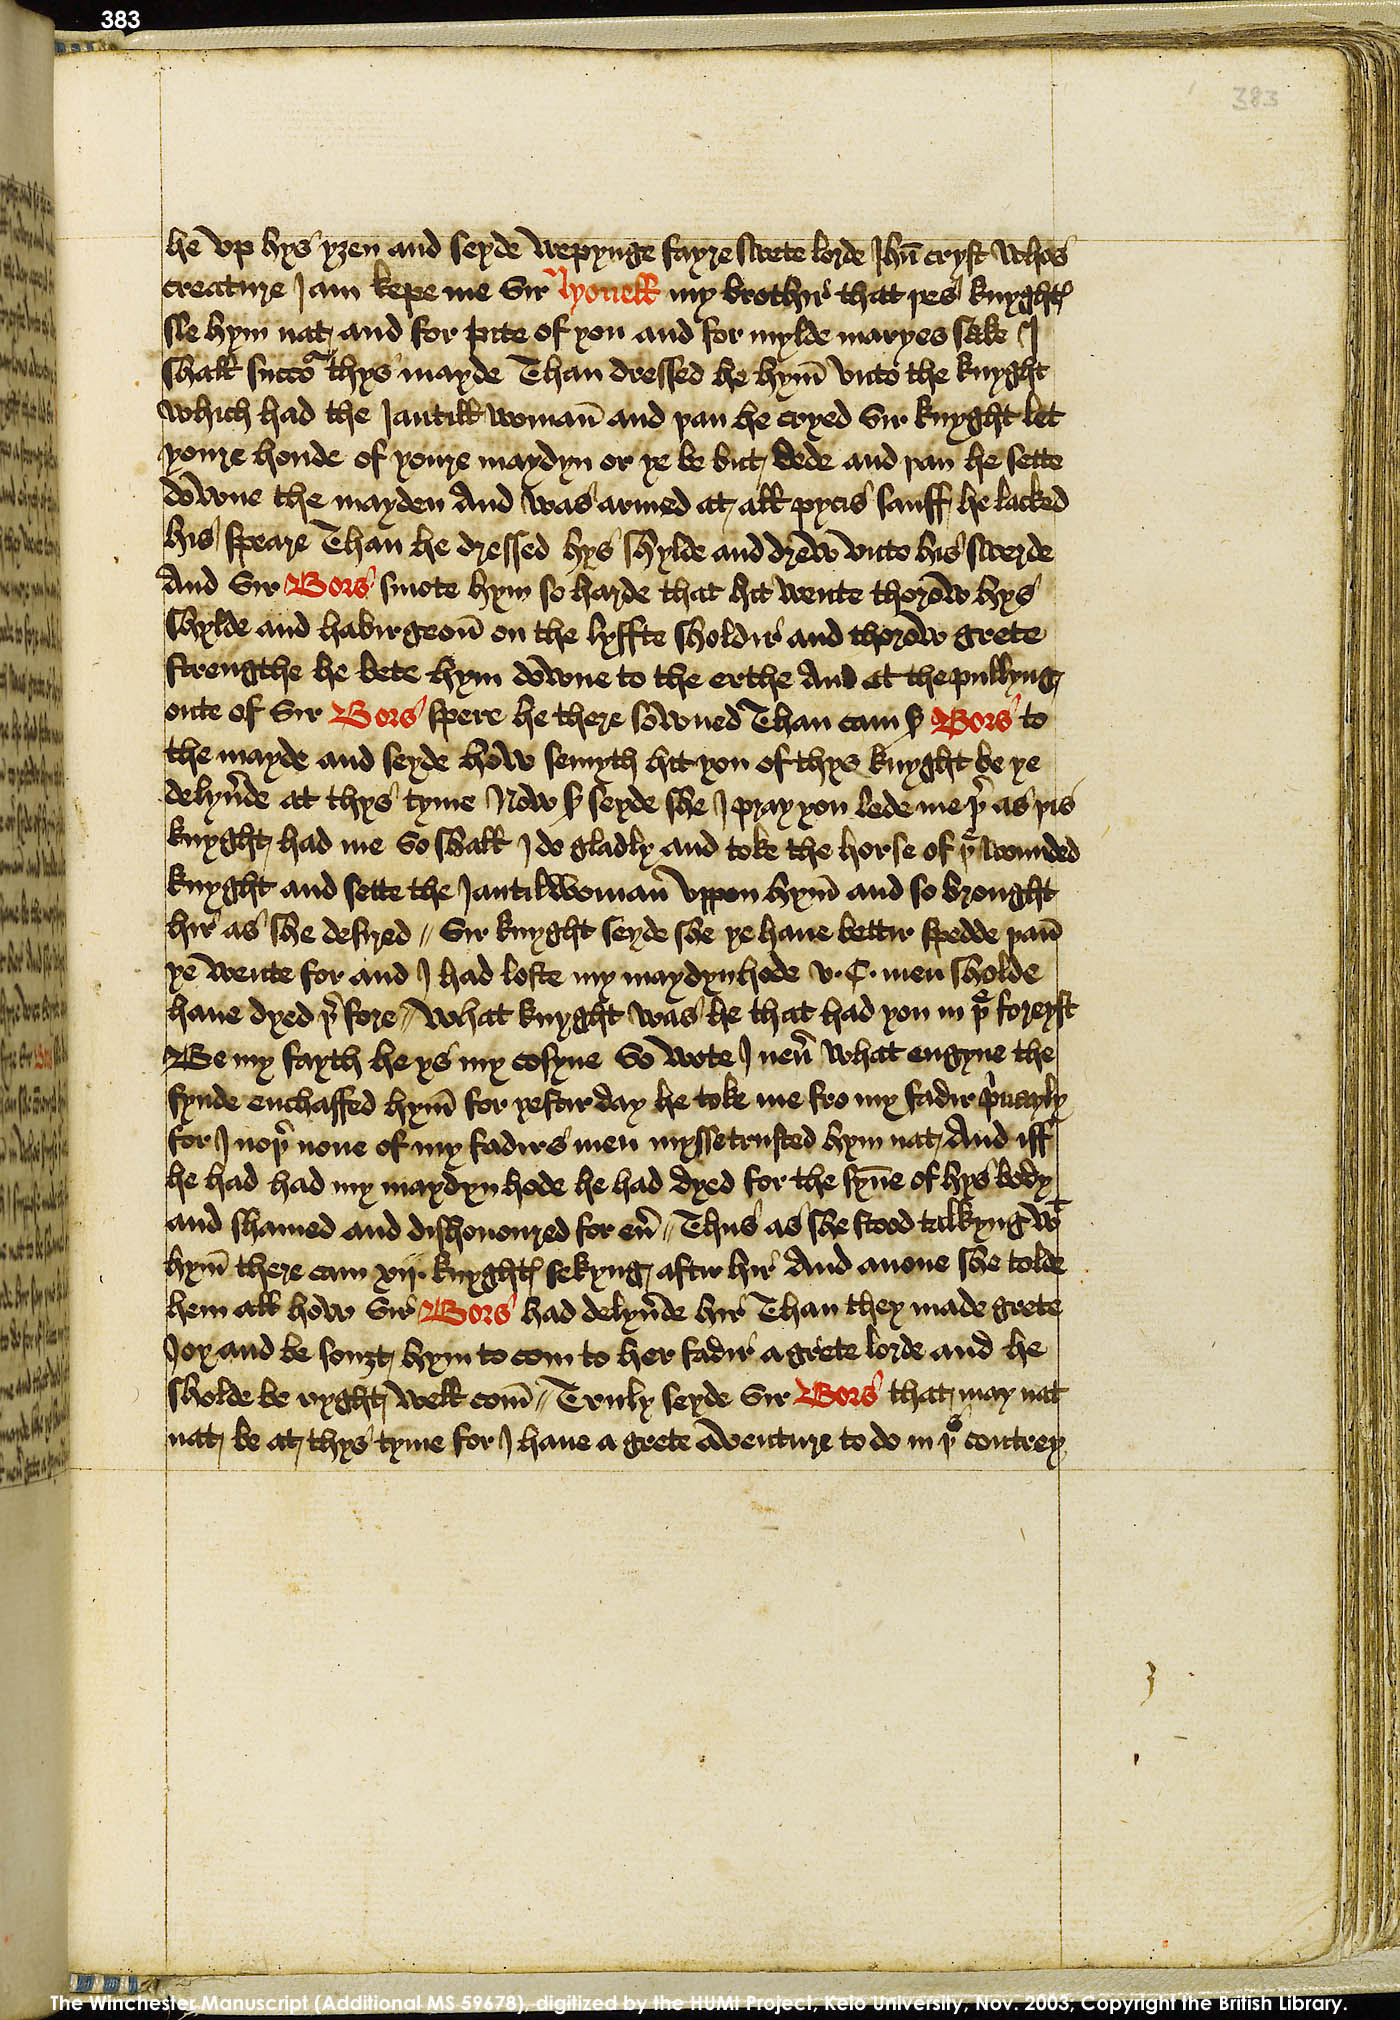 383
383
he vp hys yȝen and seyde wepynge fayre swete lorde Jhū cryst whos
creature I am kepe me Sir lyonell my brothir that þes knyghtꝭ
sle hym nat and for pite of you and for mylde maryes sake I
shall succoᷣ thys mayde Than dressed he hym̄ vnto the knyght
which had the Jantill womañ and þan he cryed Sir knyght let
youre honde of youre maydyn or ye be but dede and þan he sette
downe the mayden And was armed at all pycis sauff he lacked
his speare Than he dressed hys shylde and drew vnto his swerde
And Sir Bors smote hym so harde that hit wente thorow hys
shylde and habirgeoñ on the lyffte sholdir and thorow grete
strengthe he bete hym downe to the erthe And at the pullyng
oute of Sir Bors spere he there sowned Than cam ẜ Bors to
the mayde and seyde how semyth hit you of thys knyght be ye
delyũde at thys tyme Now ẜ seyde she I pray you lede me þ̉ as þis
knyght had me So shall I do gladly and toke the horse of þͤ wounded
knyght and sette the Jantilwomañ vppon hym̄ and so brought
hir as she desyred // Sir knyght seyde she ye haue bettir spedde þañ
ye wente for and I had loste my maydynhode v. C. men sholde
haue dyed þ̉fore // What knyght was he that had you in þͤ foreyst
Be my fayth he ys my cosyne So wote I neũ what engyne the
fynde enchaffed hym̄ for yestir day he toke me fro my fadir p̉uayly
for I noþ̉ none of my fadirs men myssetrusted hym nat And iff
he had had my maydyn hode he had dyed for the syn̄e of hys body
and shamed and dishonoured for eũ // Thus as she stood talkyng wᵗ
hym̄ there cam xij. knyghtꝭ sekyng aftir hir And anone she tolde
hem all how Sir Bors had delyũde hir Than they made grete
Joy and be souȝt hym to com to her fadir a grete lorde and he
sholde be ryght well com̄ // Truly seyde Sir Bors that may nat
nat be at thys tyme for I haue a grete aduenture to do in þͤ contrey
The Winchester Manuscript (Additional MS 59678), digitized by the HUMI Project, Keio University, Nov. 2003, Copyright the British Library.